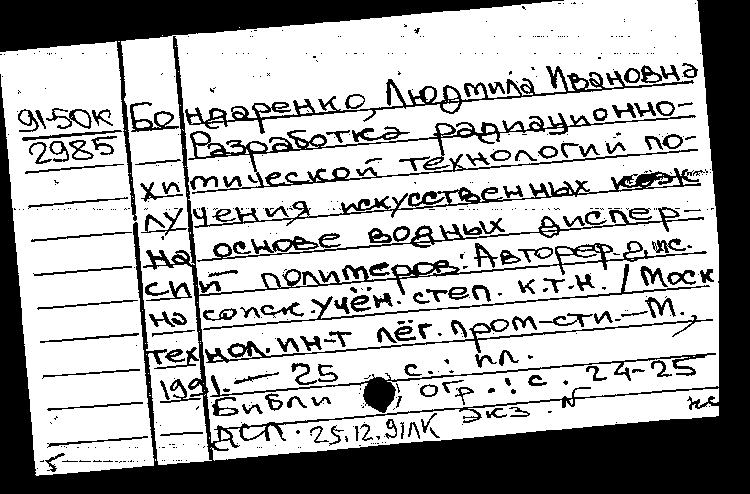 91-50К Бондаренко, Людмила Ивановна
2985 Разработка радиационно-
химической технологии по-
лучения искусственных кож
на основе водных диспер-
сий полимеров: Автореф. дис.
на соиск. учён. степ. к.т.н. / Моск
технол. ин-т лёг. пром-сти. — М.,
1991. — 25 с.: ил.
Библиогр.: с. 24-25
ДСП. 25.12.91ЛК экз. N нс
5